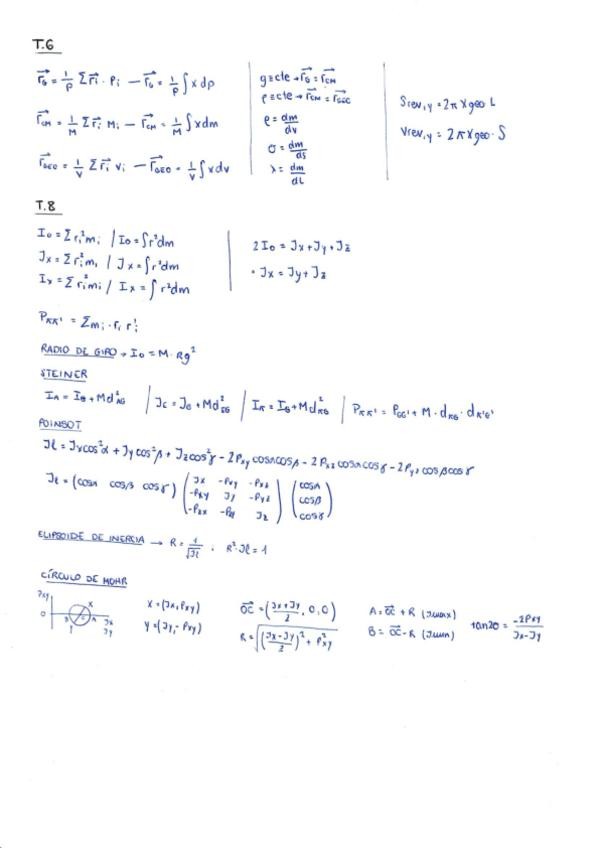 T.6
r⃗G = 1/P Σ r⃗i · Pi — r⃗G = 1/P ∫ x dp
r⃗CM = 1/M Σ r⃗i Mi — r⃗CM = 1/M ∫ x dm
r⃗GEO = 1/V Σ r⃗i Vi — r⃗GEO = 1/V ∫ x dv
g ≡ cte → r⃗G = r⃗CM
ρ ≡ cte → r⃗CM = r⃗GEO
ρ = dm/dv
σ = dm/ds
λ = dm/dL
Srev,y = 2π Xgeo L
Vrev,y = 2π Xgeo · S
T.8
Io = Σ ri² mi / Io = ∫ r² dm
Jx = Σ ri² mi / Jx = ∫ r² dm
Ix = Σ ri² mi / Ix = ∫ r² dm
2Io = Jx + Jy + Jz
· Jx = Jy + Jz
PKK' = Σ mi · ri ri'
RADIO DE GIRO → Io = M · Rg²
STEINER
IA = IG + Md²AG | JE = JG + Md²EG | IK = IG + Md²KG | PKK' = PGG' + M · dKG · dK'G'
POINSOT
Je = Jx cos²α + Jy cos²β + Jz cos²γ - 2Pxy cosα cosβ - 2Pxz cosα cosγ - 2Pyz cosβ cosγ
Je = (cosα cosβ cosγ) ( Jx -Pxy -Pxz ) ( cosα )
( -Pxy Jy -Pyz ) ( cosβ )
( -Pzx Jz ) ( cosγ )
ELIPSOIDE DE INERCIA → R = 1/√Je , R² · Je = 1
CÍRCULO DE MOHR
Pxy
O B C A X Y Jx Jy
X = (Jx, Pxy)
Y = (Jy, -Pxy)
OC⃗ = (Jx+Jy/2, 0, 0)
R = √((Jx-Jy/2)² + P²xy)
A = OC⃗ + R (Jmax)
B = OC⃗ - R (Jmin)
tan2θ = -2Pxy/Jx-Jy